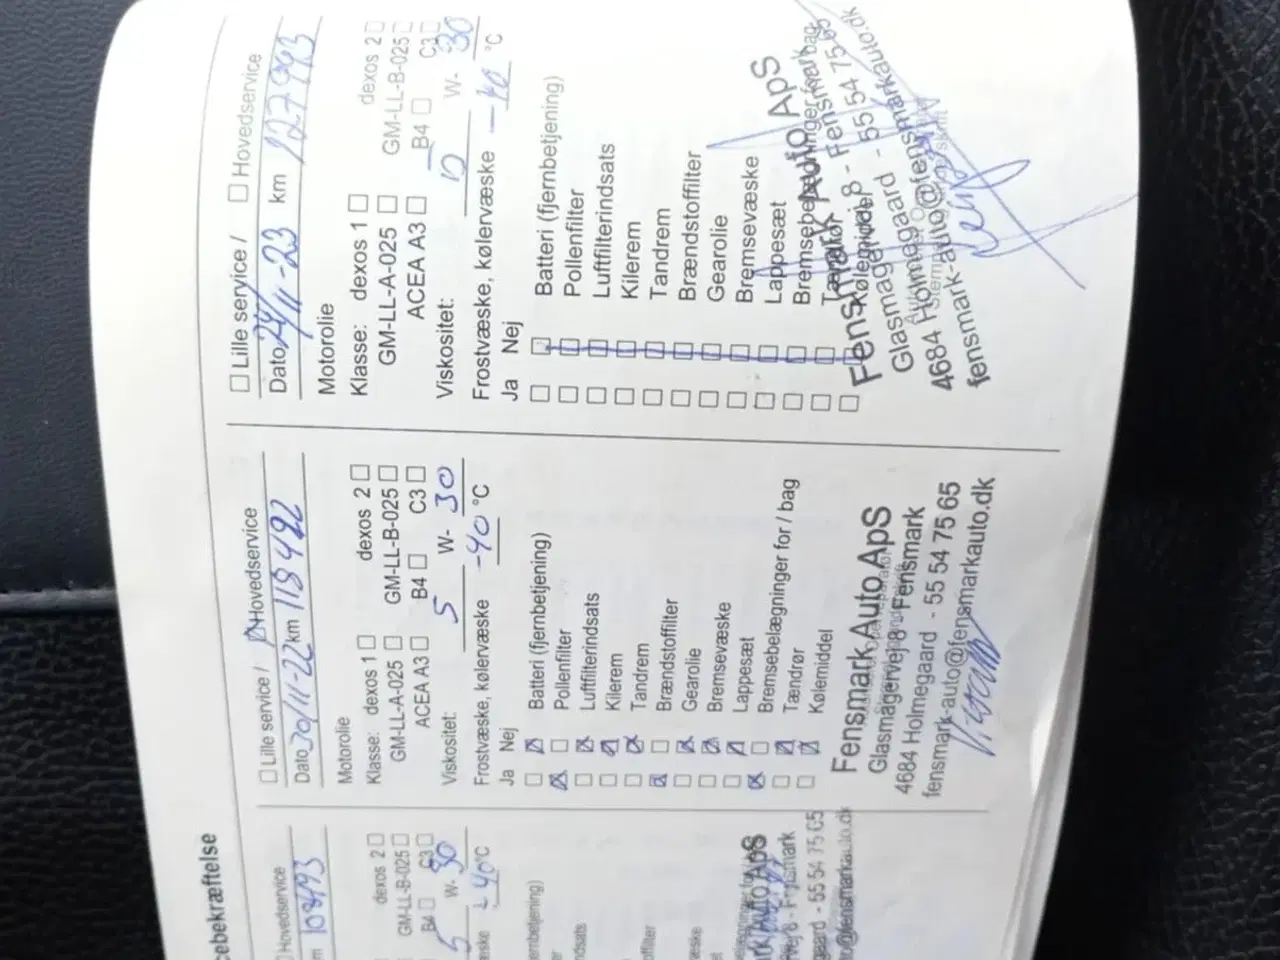 cebekræftelse
Hovedservice
m 108493
dexos 2
GM-LL-B-025
B4 C3
5 W- 30
æske -40°C
rnbetjening)
er
ndsats
offilter
æske
et
rk Auto ApS
ej 8 - Fensmark
gaard - 55 54 75 65
to@fensmarkauto.dk
Lille service / Hovedservice
Dato 30/11-22 km 118492
Motorolie
Klasse: dexos 1 dexos 2
GM-LL-A-025 GM-LL-B-025
ACEA A3 B4 C3
Viskositet: 5 W- 30
Frostvæske, kølervæske -40 °C
Ja Nej
Batteri (fjernbetjening)
Pollenfilter
Luftfilterindsats
Kilerem
Tandrem
Brændstoffilter
Gearolie
Bremsevæske
Lappesæt
Bremsebelægninger for / bag
Tændrør
Kølemiddel
Fensmark Auto ApS
Glasmagervej 8 - Fensmark
4684 Holmegaard - 55 54 75 65
fensmark-auto@fensmarkauto.dk
Lille service / Hovedservice
Dato 24/11-23 km 127993
Motorolie
Klasse: dexos 1 dexos 2
GM-LL-A-025 GM-LL-B-025
ACEA A3 B4 C3
Viskositet: W- 30
Frostvæske, kølervæske -40 °C
Ja Nej
Batteri (fjernbetjening)
Pollenfilter
Luftfilterindsats
Kilerem
Tandrem
Brændstoffilter
Gearolie
Bremsevæske
Lappesæt
Bremsebelægninger for / bag
Tændrør
Kølemiddel
Fensmark Auto ApS
Glasmagervej 8 - Fensmark
4684 Holmegaard - 55 54 75 65
fensmark-auto@fensmarkauto.dk